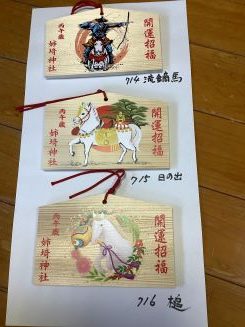 開運招福
丙午歳
姉埼神社
714 流鏑馬
開運招福
丙午歳
姉埼神社
715 日の出
開運招福
丙午歳
姉埼神社
716 槌